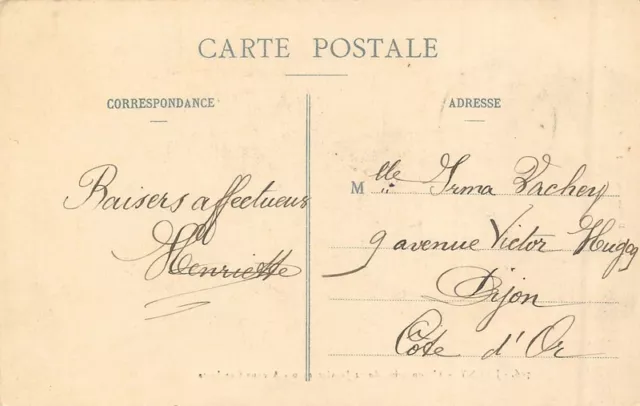 CARTE POSTALE
CORRESPONDANCE
ADRESSE
Baisers affectueux
Henriette
Mlle Irma Vachey
9 avenue Victor Hugo
Dijon
Côte d'Or